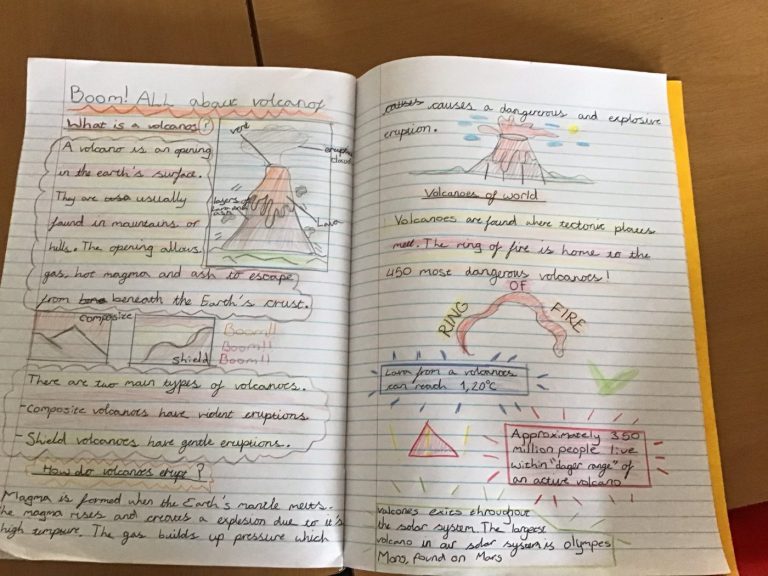 Boom! ALL about volcanos
What is a volcanos?
A volcano is an opening
in the earth's surface.
They are usually
found in mountains or
hills. The opening allows
gas, hot magma and ash to escape
from beneath the Earth's crust.
vent
eruption
cloud
layers of
lava and
ash
Lava
composite
shield
Boom!!
Boom!!
Boom!!
There are two main types of volcanoes.
-Composite volcanoes have violent eruptions
- Shield volcanoes have gentle eruptions.
How do volcanoes erupt?
Magma is formed when the Earth's mantle melts.
The magma rises and creates a explosion due to it's
high tempure. The gas builds up pressure which
causes causes a dangerous and explosive
eruption.
Volcanoes of world
Volcanoes are found where tectonic plates
meet. The ring of fire is home to the
450 most dangerous volcanoes!
RING OF FIRE
Lava from a volcanoes
can reach 1,20°C
Approximately 350
million people live
within "dager range" of
an active volcano
valcanoes exics throughout
the solar system. The largest
volcano in our solar system is olympes
Mons, found on Mars